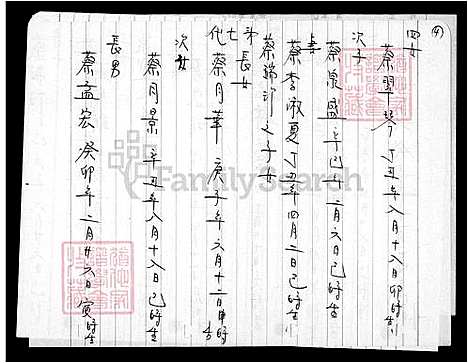 (4)
四女
蔡翠琴 丁丑年八月十八日卯時生
次子
蔡泉盛 辛巳十二月六日巳時生
妻
蔡李淑夏 丁丑年四月二日巳時生
蔡瑞卯之子女
第七代
長女
蔡月華 庚子年六月十二日申時生
次女
蔡月景 辛丑年八月十八日巳時生
長男
蔡孟宏 癸卯年二月廿六日寅時生
FamilySearch